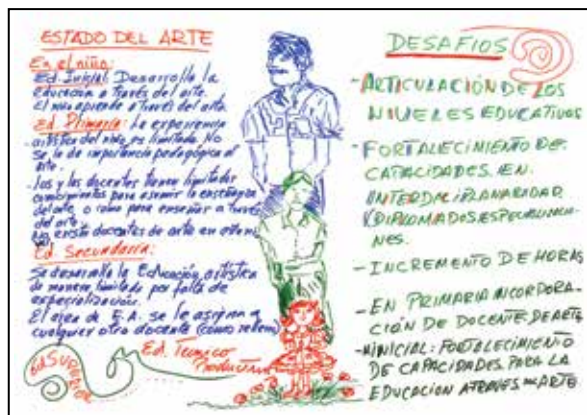 ESTADO DEL ARTE
En el niño:
Ed. Inicial: Desarrolla la
Educación a través del arte.
El niño aprende a través del arte.
Ed. Primaria: La experiencia
artística del niño es limitada. No
se le da importancia pedagógica al
arte.
- Las y los docentes tienen limitados
conocimientos para asumir la enseñanza
del arte o como para enseñar a través
del arte.
No existe docentes de arte en
Ed. Secundaria:
Se desarrolla la Educación artística
de manera limitada por falta de
especialización.
El área de E.A. se le asigna a
cualquier otro docente (como relleno)
Ed. Superior
Ed. Técnico
Productiva
DESAFIOS
- ARTICULACIÓN DE LOS
NIVELES EDUCATIVOS
- FORTALECIMIENTO DE
CAPACIDADES. EN
DIPLOMADOS ESPECIALIZACIO
NES.
- INCREMENTO DE HORAS
- EN PRIMARIA INCORPORA-
CIÓN DE DOCENTE DE ARTE
- INICIAL: FORTALECIMIENTO
DE CAPACIDADES PARA LA
EDUCACION A TRAVES DEL ARTE